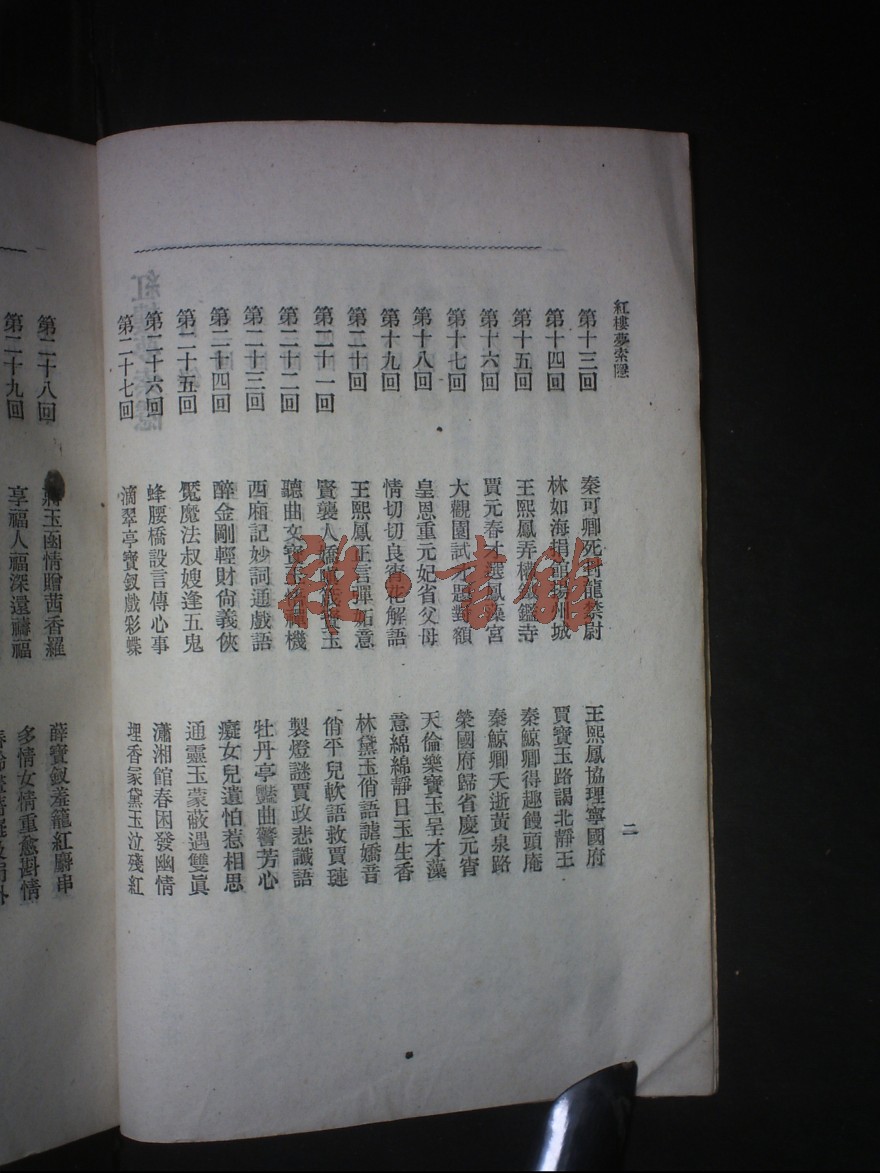 紅樓夢索隱
二
第十三回 秦可卿死封龍禁尉 王熙鳳協理寧國府
第十四回 林如海捐館揚州城 賈寶玉路謁北靜王
第十五回 王熙鳳弄權鐵鑑寺 秦鯨卿得趣饅頭庵
第十六回 賈元春才選鳳藻宮 秦鯨卿夭逝黃泉路
第十七回 大觀園試才題對額 榮國府歸省慶元宵
第十八回 皇恩重元妃省父母 天倫樂寶玉呈才藻
第十九回 情切切良宵花解語 意綿綿靜日玉生香
第二十回 王熙鳳正言彈妬意 林黛玉俏語謔嬌音
第二十一回 賢襲人嬌嗔箴寶玉 俏平兒軟語救賈璉
第二十二回 聽曲文寶玉悟禪機 製燈謎賈政悲讖語
第二十三回 西廂記妙詞通戲語 牡丹亭豔曲警芳心
第二十四回 醉金剛輕財尙義俠 癡女兒遺怕惹相思
第二十五回 魘魔法叔嫂逢五鬼 通靈玉蒙蔽遇雙眞
第二十六回 蜂腰橋設言傳心事 瀟湘館春困發幽情
第二十七回 滴翠亭寶釵戲彩蝶 埋香冢黛玉泣殘紅
第二十八回 蔣玉函情贈茜香羅 薛寶釵羞籠紅麝串
第二十九回 享福人福深還禱福 多情女情重愈斟情
雜·書館